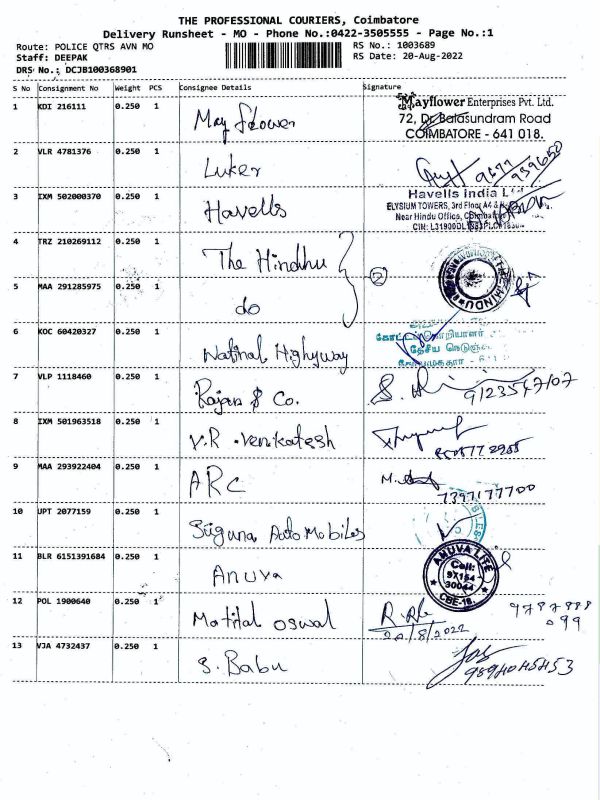 THE PROFESSIONAL COURIERS, Coimbatore
Delivery Runsheet - MO - Phone No.:0422-3505555 - Page No.:1
Route: POLICE QTRS AVN MO RS No.: 1003689
Staff: DEEPAK RS Date: 20-Aug-2022
DRS No.: DCJB100368901
S No Consignment No Weight PCS Consignee Details Signature
1 KDI 216111 0.250 1 May flower
Mayflower Enterprises Pvt. Ltd.
72, Dr. Balasundram Road
COIMBATORE - 641 018.
2 VLR 4781376 0.250 1 Luker
3 IXM 502000370 0.250 1 Havells
Havells India
ELYSIUM TOWERS, 3rd Floor A4 &
Near Hindu Office,
4 TRZ 210269112 0.250 1 The Hindhu
5 MAA 291285975 0.250 1 do
2
6 KOC 60420327 0.250 1 Natinal Highyway
தேசிய
7 VLP 1118460 0.250 1 Rajan & Co. 9123547107
8 IXM 501963518 0.250 1 V.R .Venkatesh
9 MAA 293922404 0.250 1 ARC 7397177700
10 UPT 2077159 0.250 1 Suguna Auto Mobiles
11 BLR 6151391684 0.250 1 Anuva
ANUVA LITE
Cell:
97164
30044
CBE-18.
12 POL 1900640 0.250 1 Motilal oswal
20/8/2022
9787888
099
13 VJA 4732437 0.250 1 S. Babu